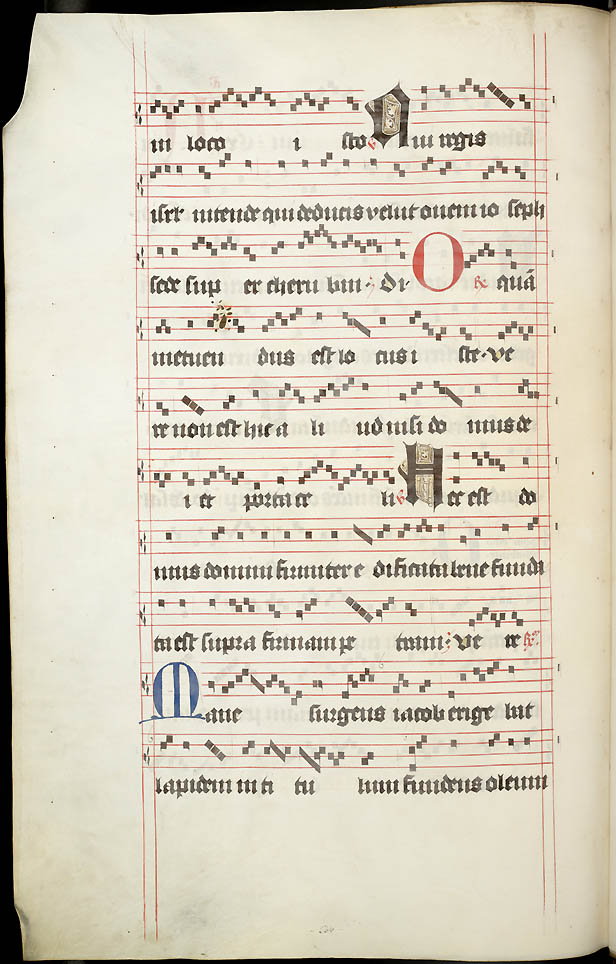 in loco i sto ℣ Qui regis
isrl intende qui deducis velut ovem io seph
sede sup er cheru bin · Di ℟ O quā
metuen dus est lo cus i ste · ve
re non est hic a li ud nisi do mus de
i et porta ce li ℣ Hec est do
mus domini firmiter e dificata bene funda
ta est supra firmam pe tram · ve re ℟
Mane surgens iacob erige bat
lapidem in ti tu lum fundens oleum